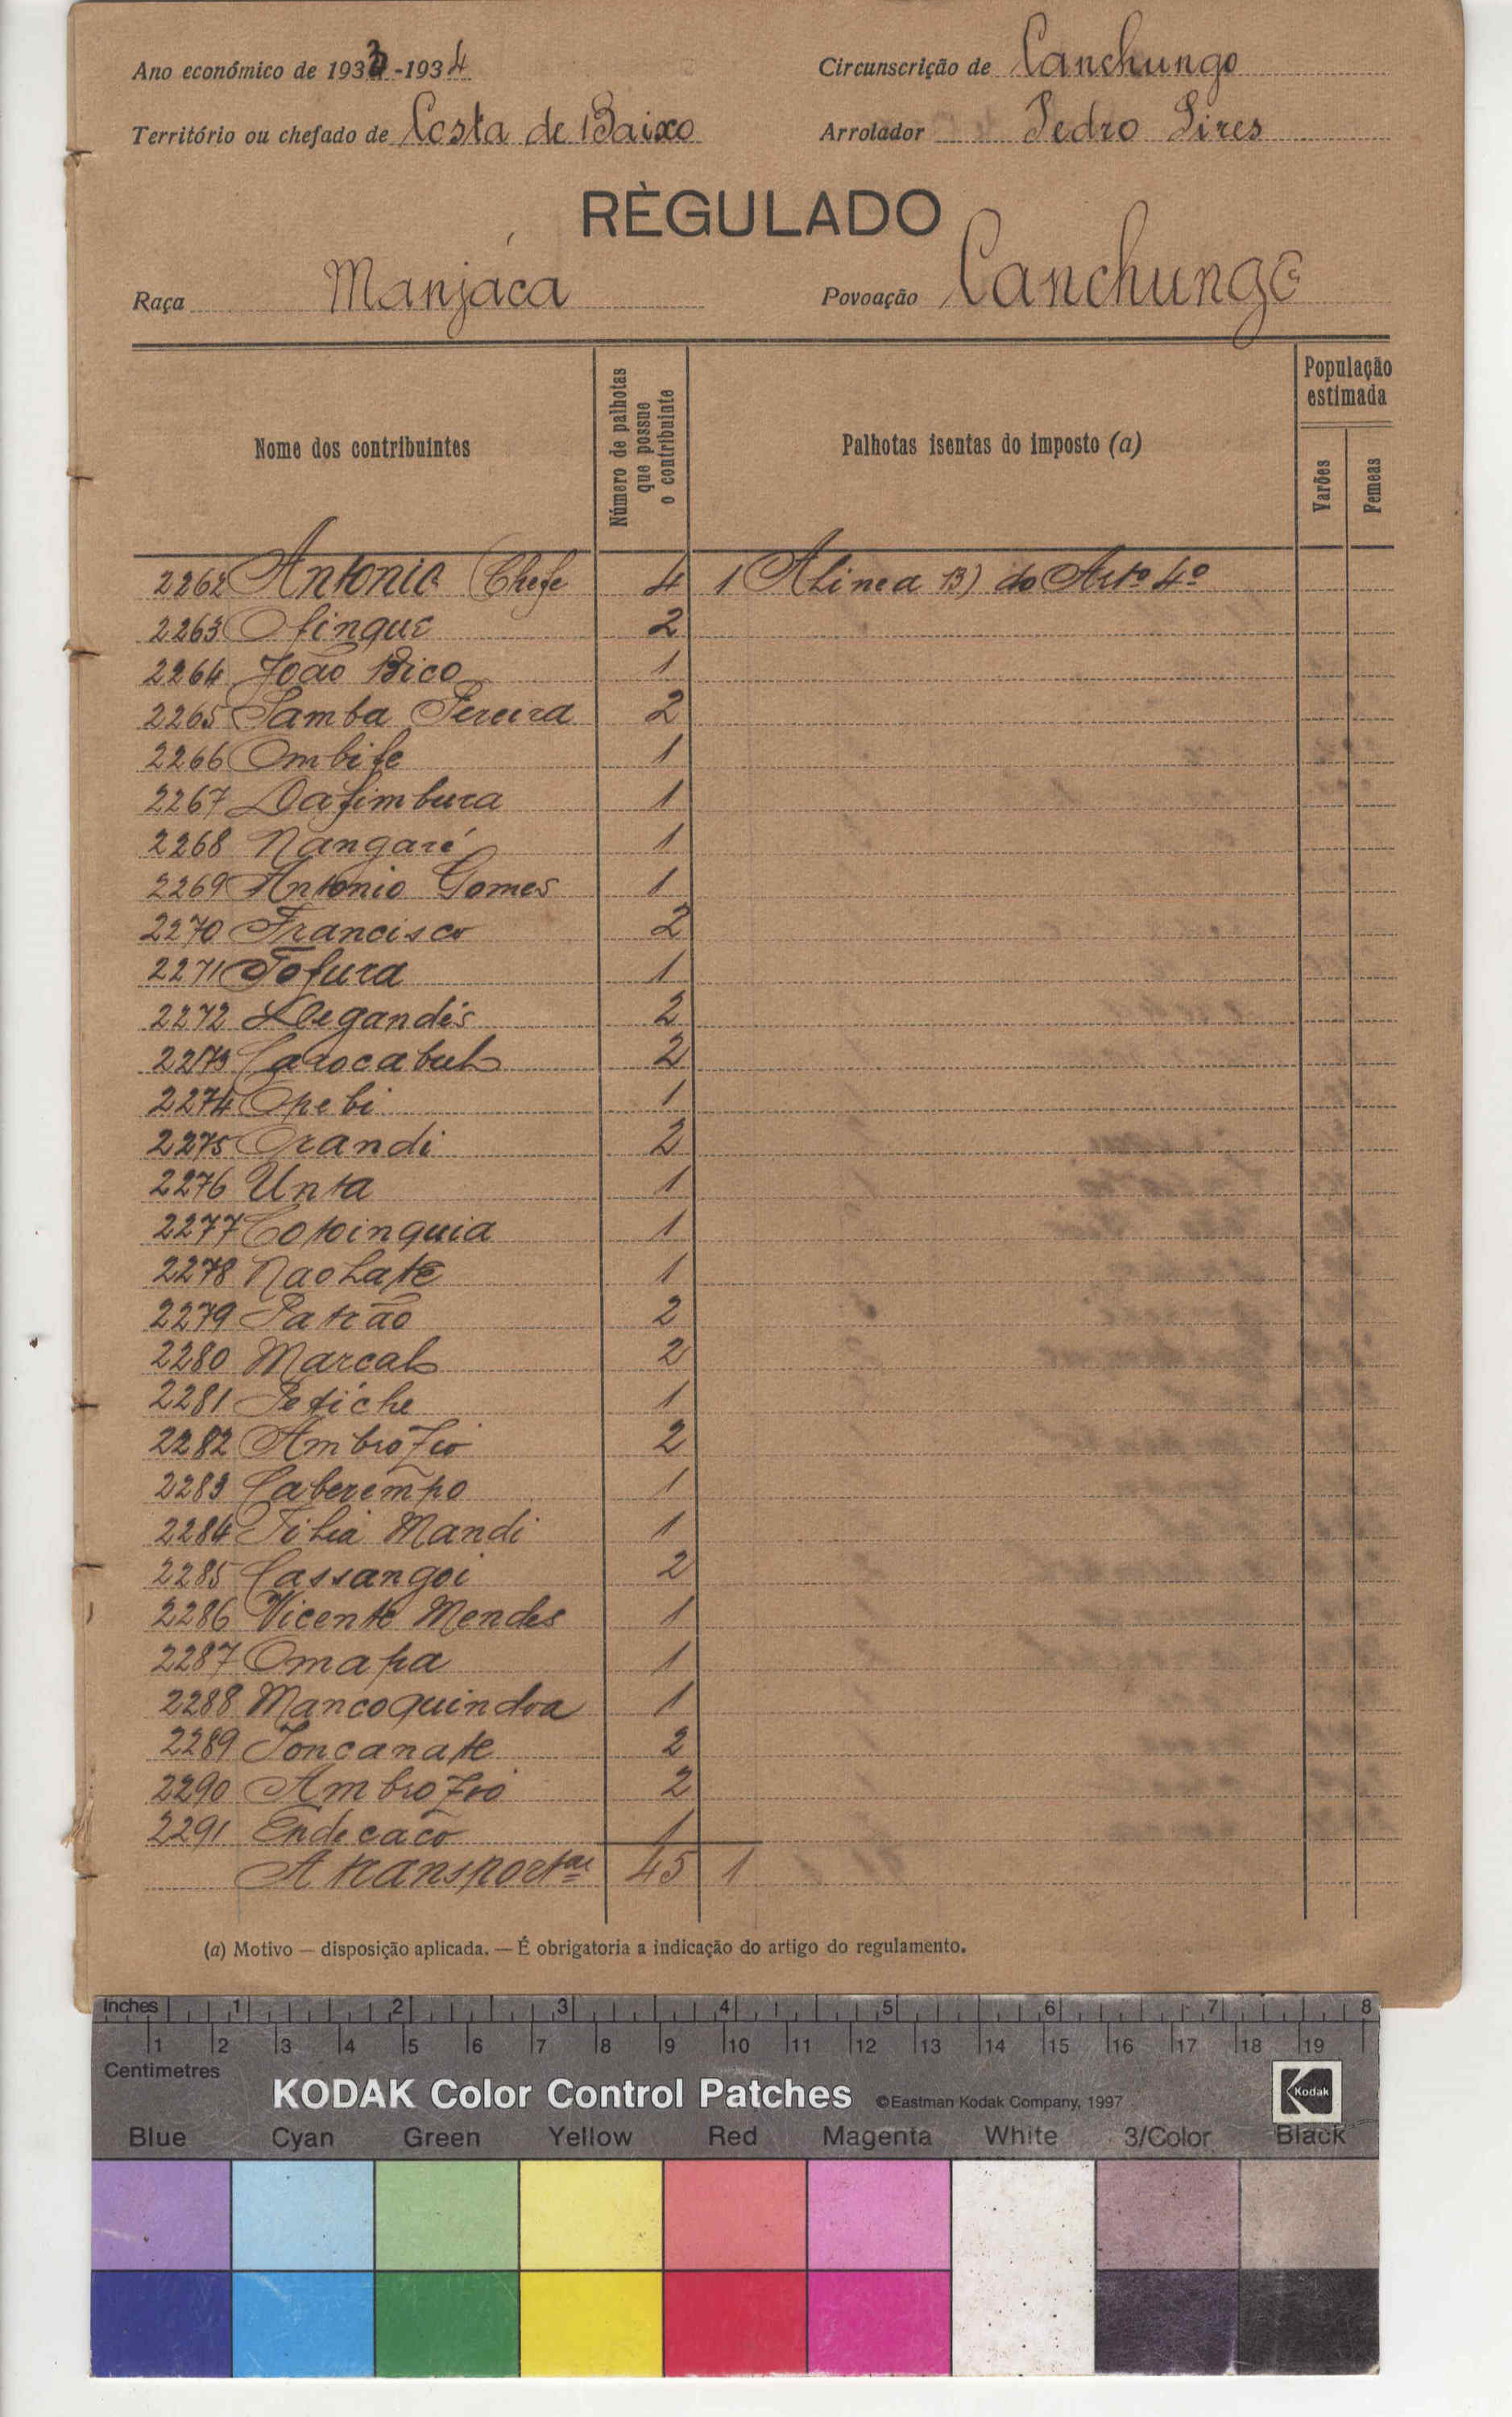 Ano económico de 1933-1934 Circunscrição de Canchungo
Território ou chefado de Costa de Baixo Arrolador Pedro Pires
RÈGULADO
Raça Manjáca Povoação Canchungo
Nome dos contribuintes Número de palhotas que possue o contribuinte Palhotas isentas do imposto (a) População estimada Varões Femeas
2262 Antonio (Chefe 4 1 Alinea B) do Artº 4º
2263 Ofinque 2
2264 João Bico 1
2265 Samba Pereira 2
2266 Ombife 1
2267 Dafimbura 1
2268 Nangaré 1
2269 Antonio Gomes 1
2270 Francisco 2
2271 Tofura 1
2272 Degandés 2
2273 Carocabul 2
2274 Opebi 1
2275 Orandi 2
2276 Unta 1
2277 Cotoinquia 1
2278 Naolate 1
2279 Patrão 2
2280 Marcal 2
2281 Petiche 1
2282 Ambrozio 2
2283 Caberempo 1
2284 Filia Mandi 1
2285 Cassangoi 2
2286 Vicente Mendes 1
2287 Omapa 1
2288 Mancoquindoa 1
2289 Joncanate 2
2290 Ambrozio 2
2291 Endecaco 1
A transportar 45 1
(a) Motivo — disposição aplicada. — É obrigatoria a indicação do artigo do regulamento.
Inches 1 2 3 4 5 6 7 8
1 2 3 4 5 6 7 8 9 10 11 12 13 14 15 16 17 18 19
Centimetres
KODAK Color Control Patches ©Eastman Kodak Company, 1997 Kodak
Blue Cyan Green Yellow Red Magenta White 3/Color Black